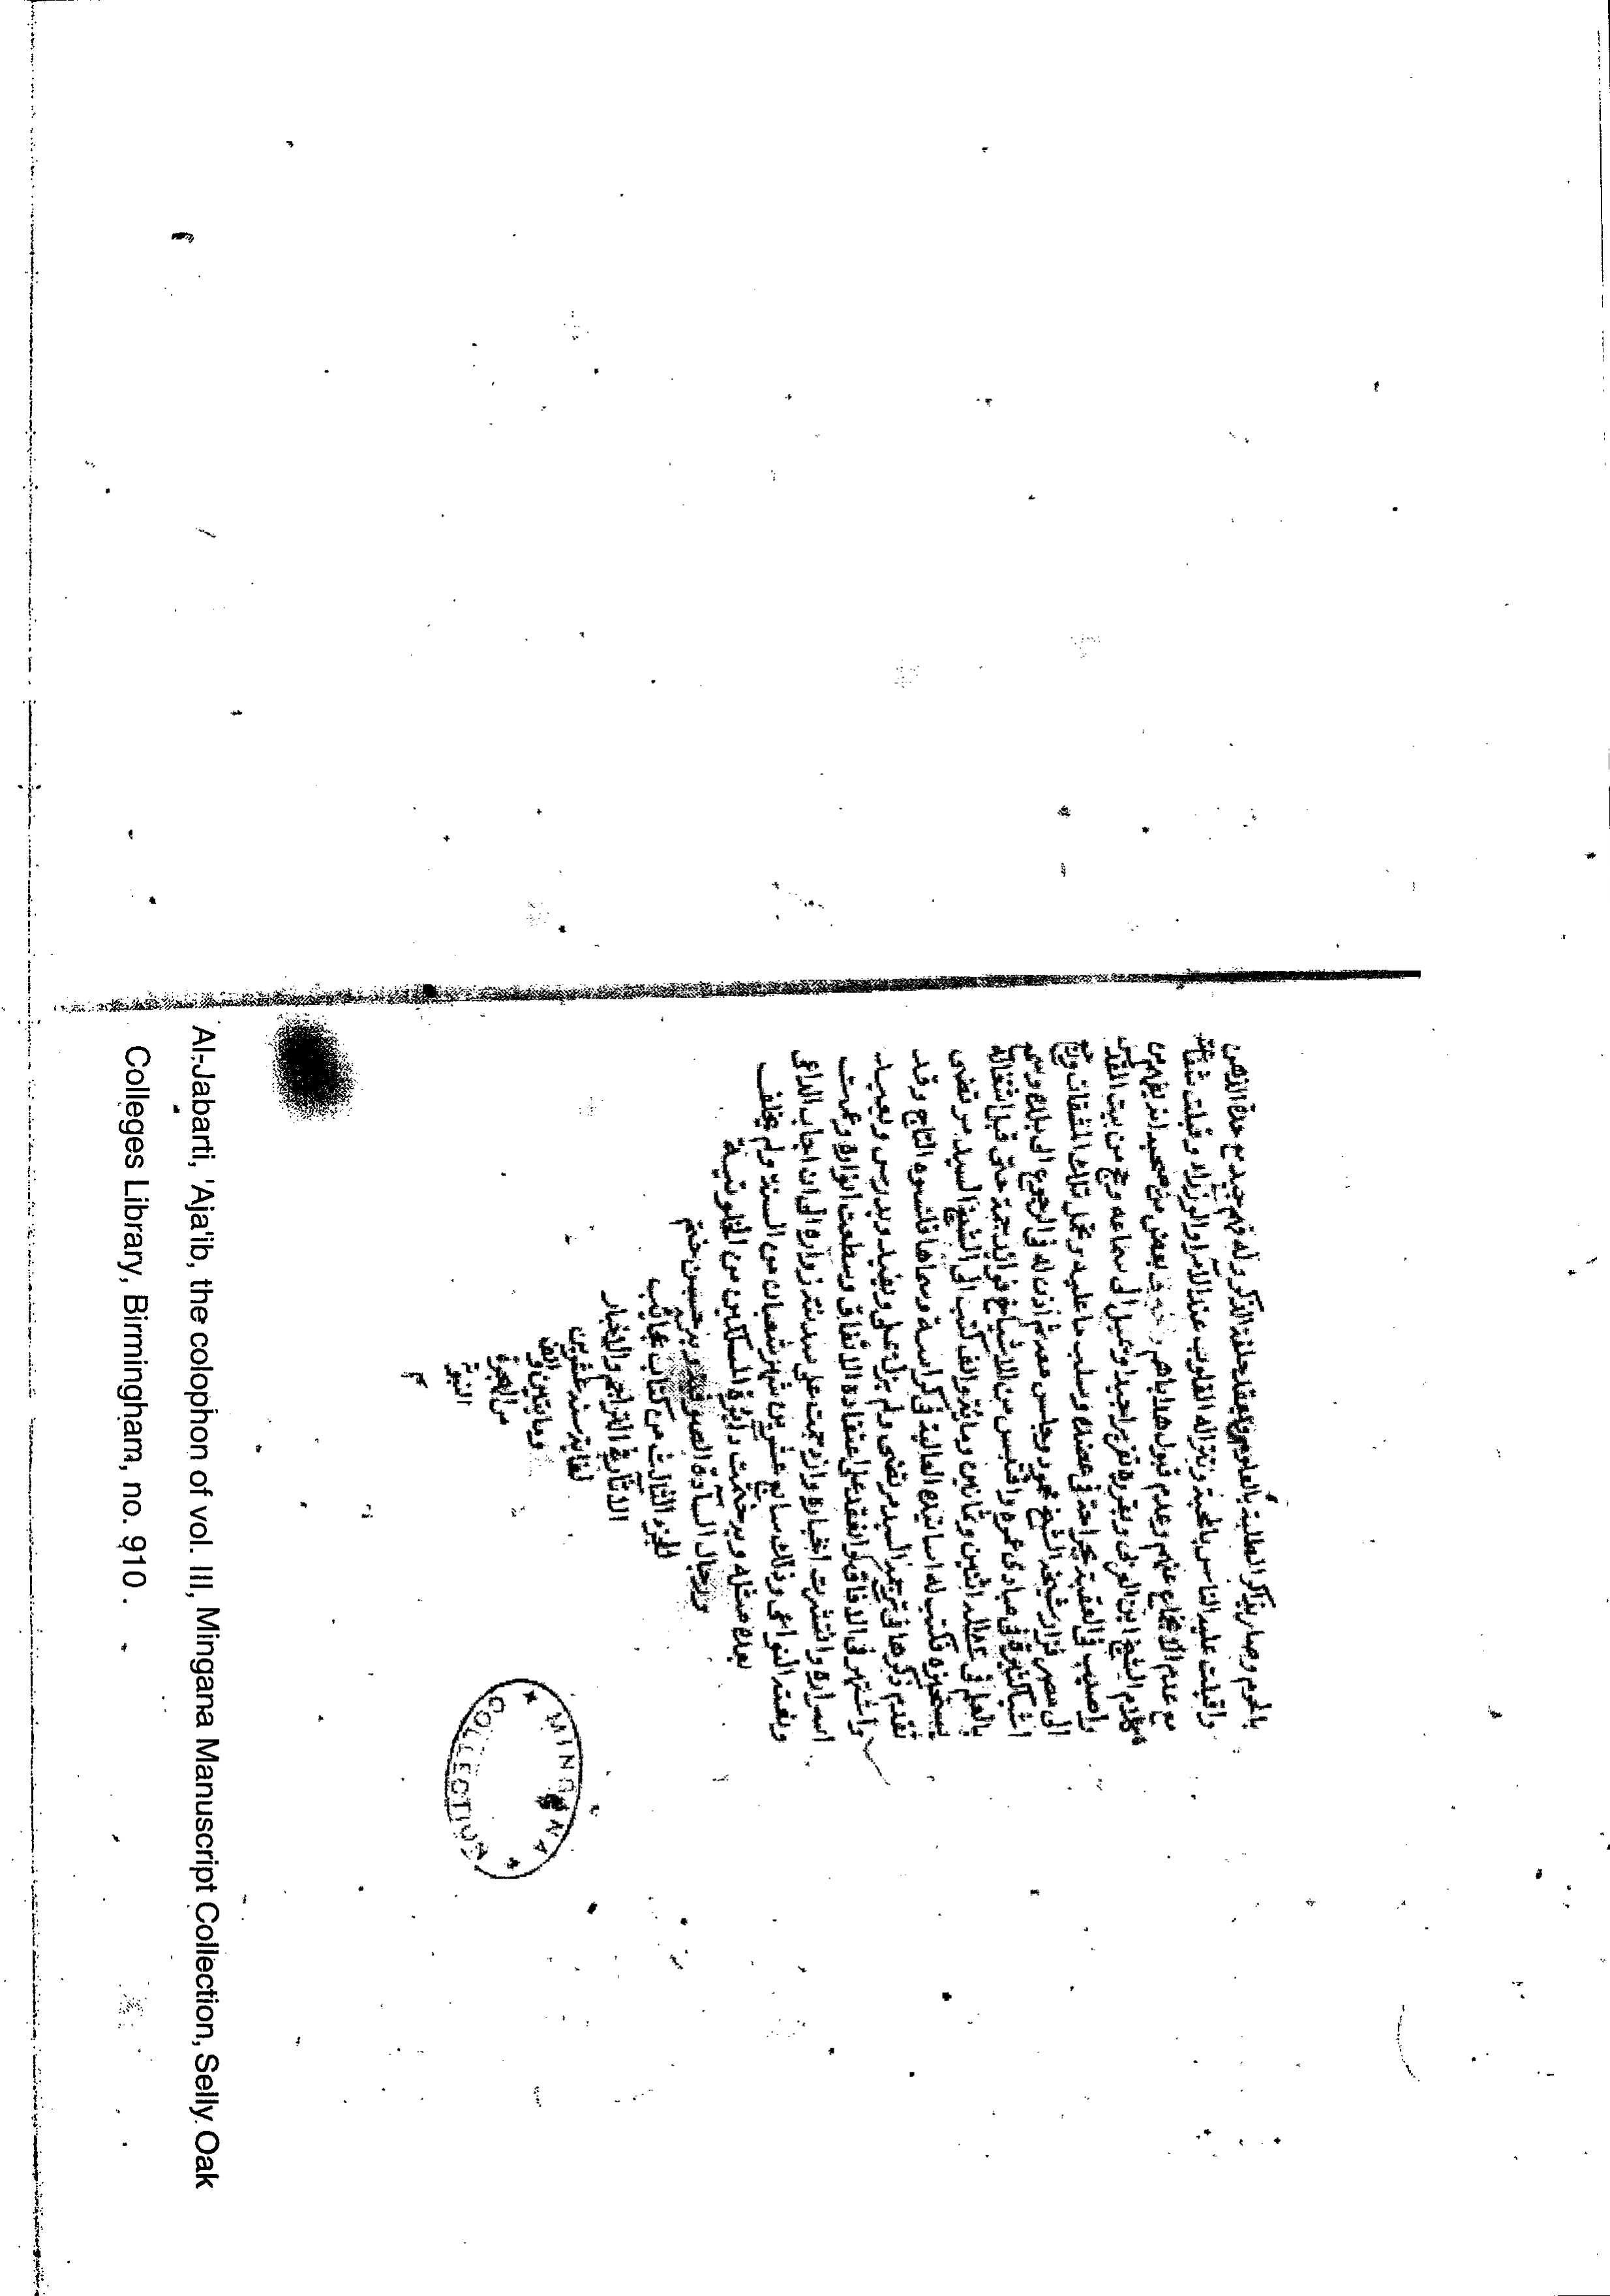 بالحرم وصار يذاكر الطلبة بالعلوم ويعقد حلقة الذكر وله فهم جيد مع حدة الذهن
واقبلت عليه الناس بالمحبة ونزل له القلوب عند الأمرا والوزراء وقبلت شفاعته
مع عدم الانجماع عنهم وعدم قبول هداياهم بعض من صحبه انه يفهم من
كلام الشيخ ابن العربى ويقرره تقريرا جيدا ويميل الى سماعه وحج من بيت المقدس
واصيب فى العقبة بجراحة فى عضده وسلب ما عليه وتحمل تلك المشقات ورجع
الى مصر فزار شيخه الشيخ محمود وجلس مدة ثم أذن له فى الرجوع الى بلده وسمع
اشيا كثيرة فى مبادى عمره واقتبس من الاشياخ فوائد جمة حتى قبل اشتغاله
بالعلم فى سنة اثنين وثمانين ومائة والف كتب الى الشيخ السيد مرتضى
يستجيزه فكتب له اسانيده العالية فى كراسة وسماها قلنسوة التاج وقد
تقدم ذكرها فى ترجمة السيد مرتضى ولم يزل يملى ويفيد ويدرس ويعيد
واشتهر فى الافاق وانعقد على اعتقاده الاتفاق وسطعت انواره وعمت
اسراره وانتشرت اخباره وازدحمت على سدته زواره الى ان اجاب الداعى
ونعته النواعى وذلك سابع عشرين شهر شعبان من السنة ولم يخلف
بعده مثله وبه ختمت دائرة المسلكين من الخلوتية
ورجال السادة الصوفية وبه حسن ختم
الجزء الثالث من كتاب عجائب
الاثار فى التراجم والاخبار
لغاية سنة عشرين
ومايتين والف
من الهجرة
النبوية
م
MINGANA
COLLECTION
Al-Jabarti, 'Aja'ib, the colophon of vol. III, Mingana Manuscript Collection, Selly Oak
Colleges Library, Birmingham, no. 910 .